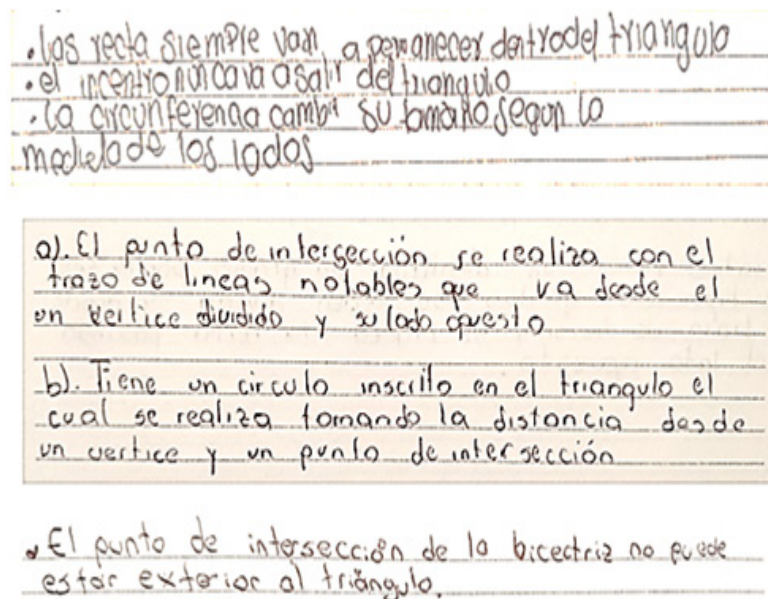 . las recta siempre van a permanecer dentro del triangulo
. el incentro nunca va a salir del triangulo
. la circunferencia cambia su tamaño segun lo
medida de los lados
a). El punto de intersección se realiza con el
trazo de lineas notables que va desde el
un vertice dividido y su lado opuesto
b). Tiene un circulo inscrito en el triangulo el
cual se realiza tomando la distancia desde
un vertice y un punto de intersección
• El punto de intersección de la bicectriz no puede
estar exterior al triángulo.